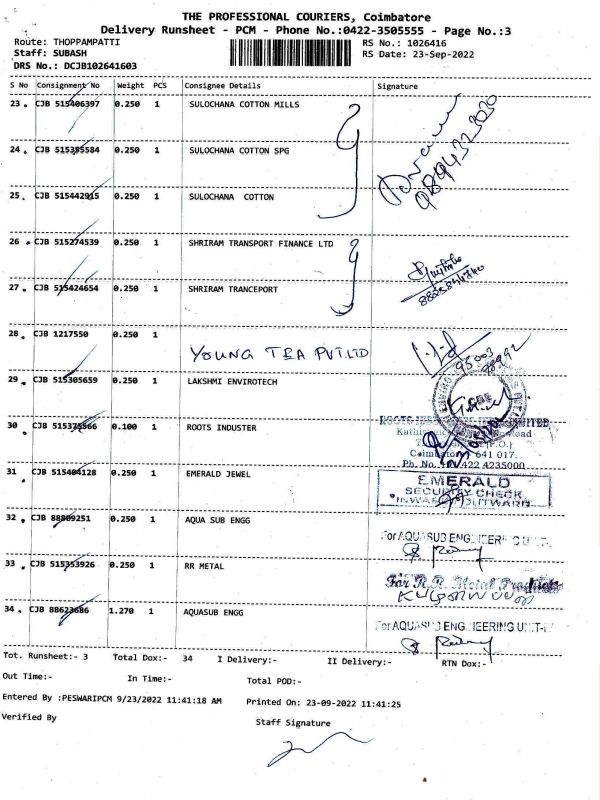 THE PROFESSIONAL COURIERS, Coimbatore
Delivery Runsheet - PCM - Phone No.:0422-3505555 - Page No.:3
Route: THOPPAMPATTI RS No.: 1026416
Staff: SUBASH RS Date: 23-Sep-2022
DRS No.: DCJB102641603
S No Consignment No Weight PCS Consignee Details Signature
23 CJB 515406397 0.250 1 SULOCHANA COTTON MILLS
9894323030
24 CJB 515395584 0.250 1 SULOCHANA COTTON SPG
25 CJB 515442915 0.250 1 SULOCHANA COTTON
26 CJB 515274539 0.250 1 SHRIRAM TRANSPORT FINANCE LTD
27 CJB 515424654 0.250 1 SHRIRAM TRANCEPORT
28 CJB 1217550 0.250 1
YOUNG TEA PVT.LTD
95003
29 CJB 515305659 0.250 1 LAKSHMI ENVIROTECH
30 CJB 515375566 0.100 1 ROOTS INDUSTER
641 017.
Ph. No. 422 4235000
31 CJB 515404128 0.250 1 EMERALD JEWEL
EMERALD
SECURITY CHECK
INWARD OUTWARD
32 CJB 88809251 0.250 1 AQUA SUB ENGG
For AQUASUB ENGINEERING UNIT-
33 CJB 515353926 0.250 1 RR METAL
For R.R. Metal Products
34 CJB 88623686 1.270 1 AQUASUB ENGG
For AQUASUB ENGINEERING UNIT-
Tot. Runsheet:- 3 Total Dox:- 34 I Delivery:- II Delivery:- RTN Dox:-
Out Time:- In Time:- Total POD:-
Entered By :PESWARIPCM 9/23/2022 11:41:18 AM Printed On: 23-09-2022 11:41:25
Verified By Staff Signature